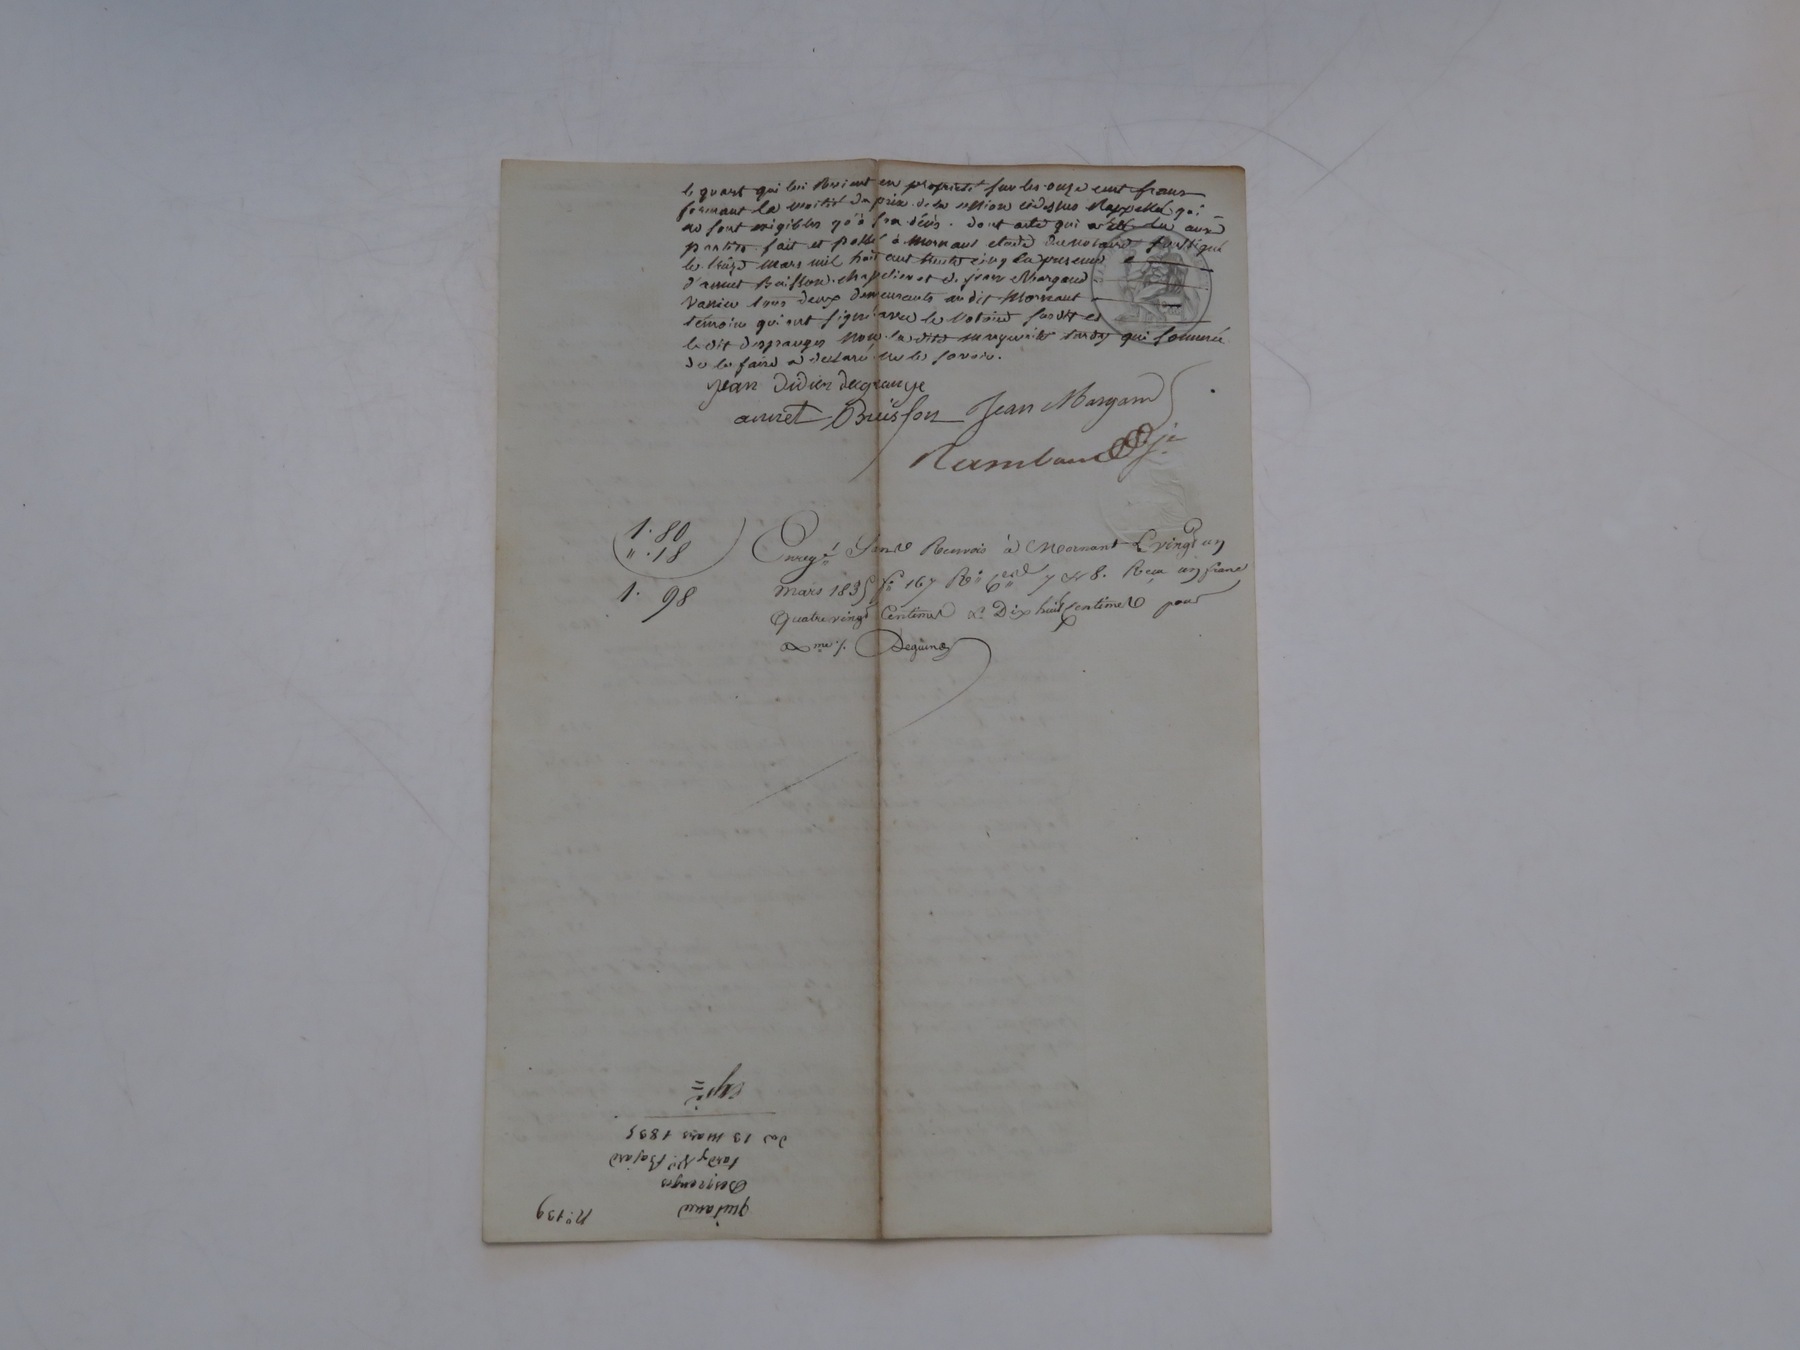 le quart qui lui Revient en propriété sur les onze cent francs
formant la moitié du prix de la cession cidessus Rappellée qui
ne sont exigibles qu'à son décès. dont acte qui a été lu aux
parties fait et passé à Mornant etude du notaire soussigné
le treize mars mil huit cent trente cinq en presence
d'annet Buisson chapelier et de jean Margand
vanier tous deux demeurants au dit Mornant
témoins qui ont signé avec le Notaire susdit et
le dit desgranges non la dite marguerite tardy qui sommée
de le faire a déclaré ne le savoir.
Jean didier degrange
annet Buisson Jean Margand
Rambaud
1. 80
" . 18
1. 98
Enreg.é Sans Renvois à Mornant Le vingt un
mars 1835 f.o 167 R.o C.es 7 et 8. Reçu un franc
quatre vingt Centimes & Dix huit Centimes pour
Xme ./. Deguins
N.o 139
quitance
Desgranges
tardy V.e Bajard
du 13 mars 1835
exp.é